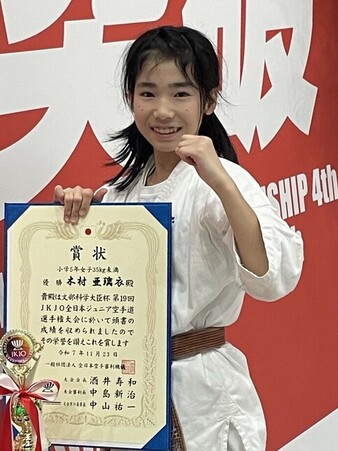 突破
NSHIP 4th
賞状
小学5年女子35kg未満
優勝 木村亜璃衣殿
貴殿は文部科学大臣杯 第19回
JKJO全日本ジュニア空手道
選手権大会に於いて頭書の
成績を収められましたので
その栄誉を讃えこれを賞します
令和7年11月23日
一般社団法人 全日本空手審判機構
大会会長 酒井寿和
大会審判長 中島新治
大会実行委員長 中山祐一
JKJO